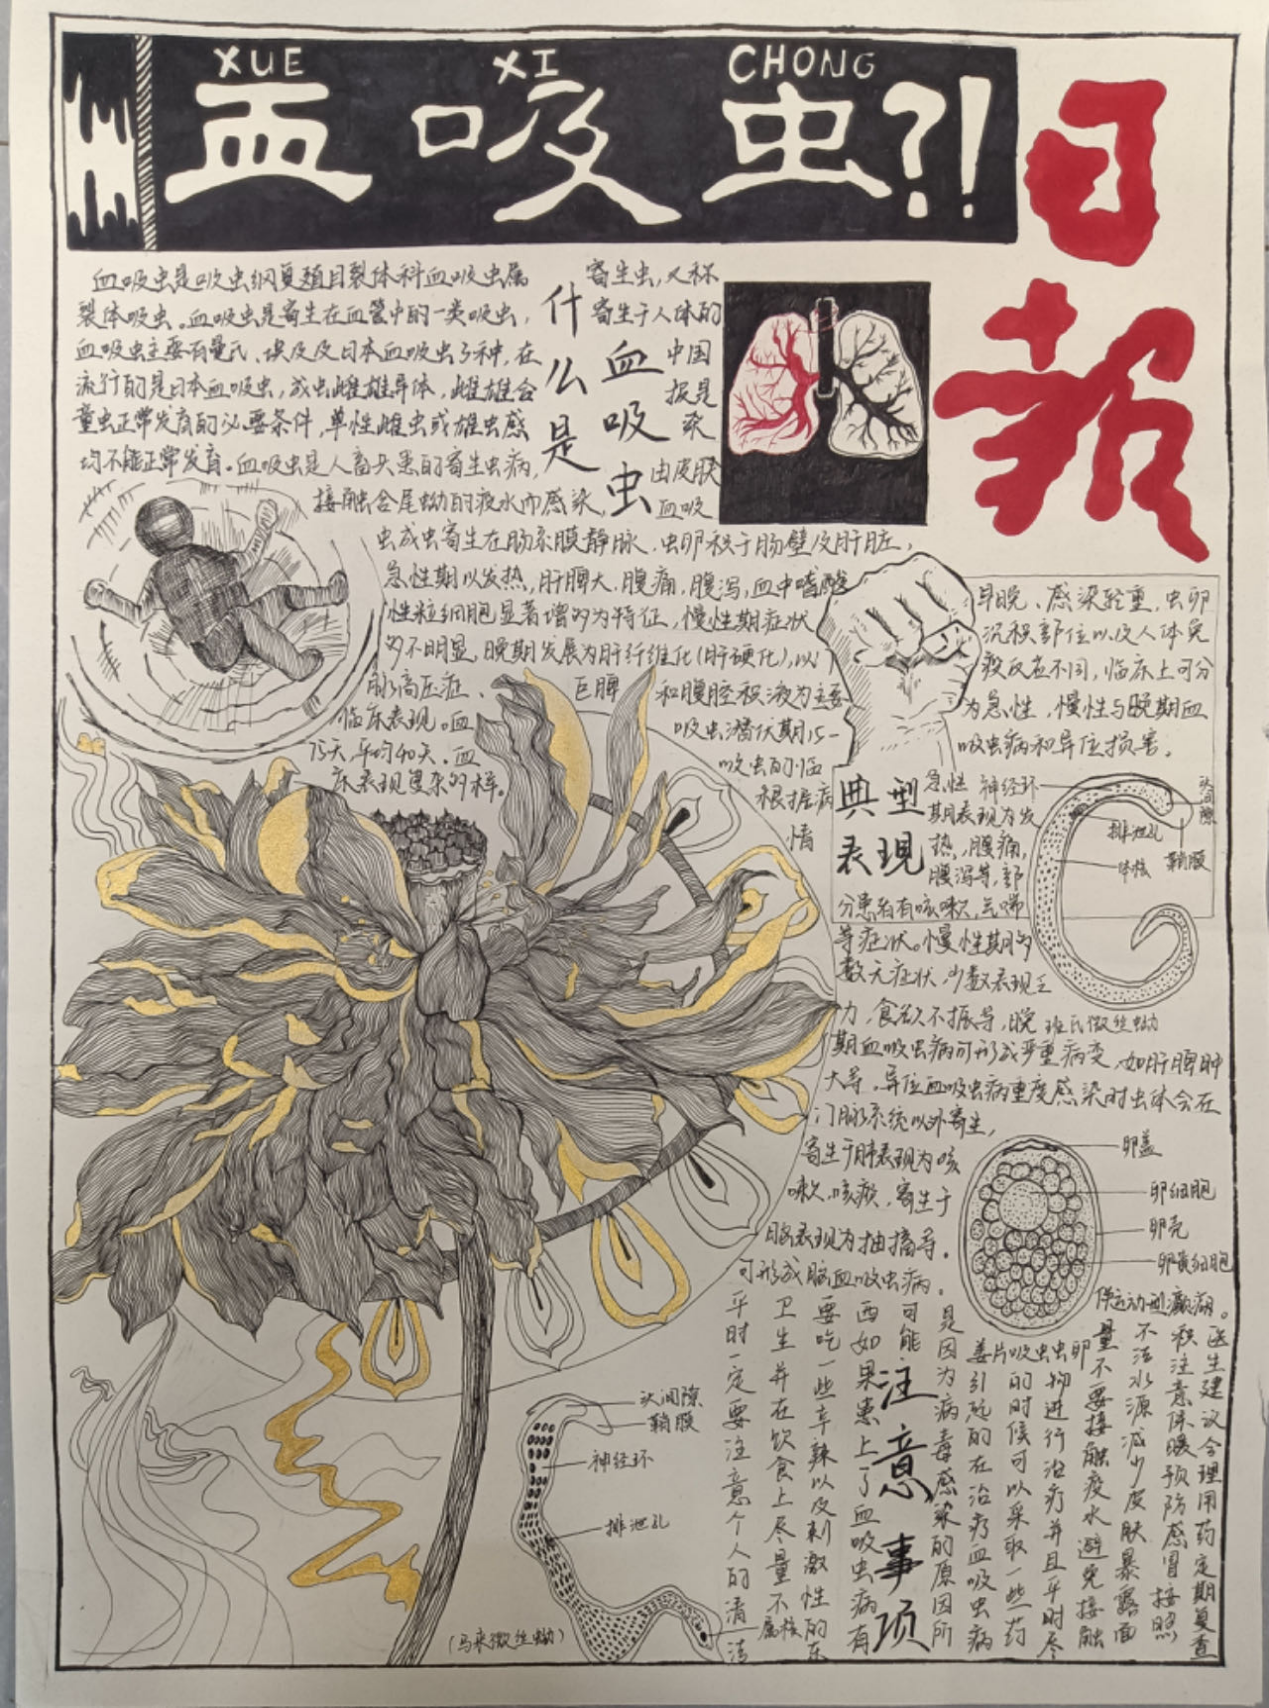 XUE XI CHONG
血吸虫?!
日报
什么是
血吸虫
血吸虫是吸虫纲复殖目裂体科血吸虫属
寄生虫,又称
裂体吸虫。血吸虫是寄生在血管中的一类吸虫,
寄生于人体的
血吸虫主要有曼氏、埃及及日本血吸虫3种,在
中国
流行的是日本血吸虫,成虫雌雄异体,雌雄合
抱是
童虫正常发育的必要条件,单性雌虫或雄虫感
染
均不能正常发育。血吸虫是人畜共患的寄生虫病,
由皮肤
接触含尾蚴的疫水而感染,
血吸
虫成虫寄生在肠系膜静脉,虫卵积于肠壁及肝脏,
急性期以发热,肝脾大,腹痛,腹泻,血中嗜酸
性粒细胞显著增多为特征,慢性期症状
多不明显,晚期发展为肝纤维化(肝硬化),以门
脉高压症、
巨脾
和腹腔积液为主要
临床表现。血
吸虫潜伏期15-
75天,平均40天。血
吸虫的临
床表现复杂多样。
根据病
情
早晚、感染轻重、虫卵
沉积部位以及人体免
疫反应不同,临床上可分
为急性,慢性与晚期血
吸虫病和异位损害。
典型
表现
急性
期表现为发
热,腹痛,
腹泻等,部
分患者有咳嗽,气喘
等症状。慢性期多
数无症状,少数表现乏
力,食欲不振等,晚
期血吸虫病可形成严重病变,如肝脾肿
大等。异位血吸虫病重度感染时虫体会在
门脉系统以外寄生,
寄生于肺表现为咳
嗽、咳痰,寄生于
脑表现为抽搐等。
可形成脑血吸虫病。
神经环
头间隙
排泄孔
体核
鞘膜
班氏微丝蚴
卵盖
卵细胞
卵壳
卵黄细胞
姜片吸虫虫卵
注意事项
平时一定要注意个人的清洁
卫生并在饮食上尽量不
要吃一些辛辣以及刺激性的东
西如果患上了血吸虫病有
可能
是因为病毒感染的原因所
引起的在治疗血吸虫病
的时候可以采取一些药
物进行治疗并且平时尽
量不要接触疫水避免接触
不洁水源减少皮肤暴露面
积注意保暖预防感冒按照
医生建议合理用药定期复查
头间隙
鞘膜
神经环
排泄孔
尾核
(马来微丝蚴)